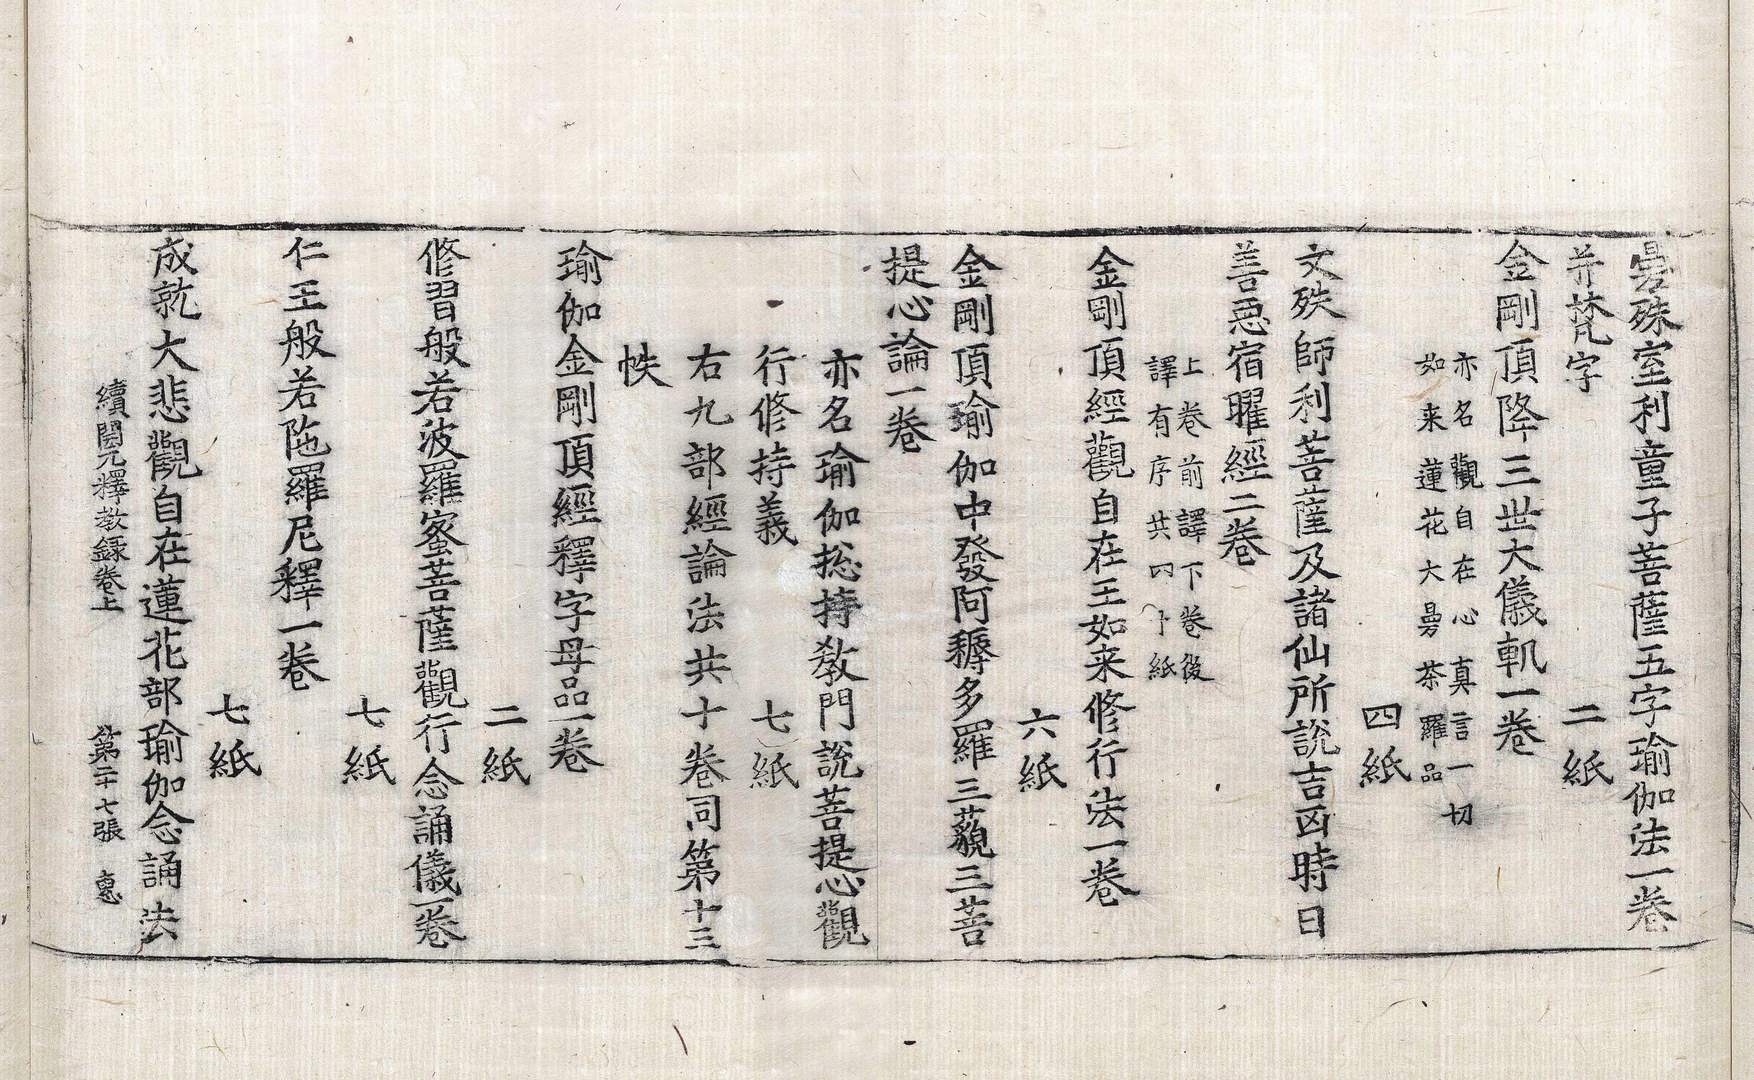 曼殊室利童子菩薩五字瑜伽法一卷
并梵字　二紙
金剛頂降三世大儀軌一卷
亦名觀自在心真言一切
如来蓮花大曼荼羅品
四紙
文殊師利菩薩及諸仙所說吉凶時日
善惡宿曜經二卷
上卷前譯下卷後
譯有序共四十紙
金剛頂經觀自在王如来修行法一卷
六紙
金剛頂瑜伽中發阿耨多羅三藐三菩
提心論一卷
亦名瑜伽捴持教門說菩提心觀
行修持義　七紙
右九部經論法共十卷同第十三
帙
瑜伽金剛頂經釋字母品一卷
二紙
修習般若波羅蜜菩薩觀行念誦儀一卷
七紙
仁王般若陁羅尼釋一卷
七紙
成就大悲觀自在蓮花部瑜伽念誦法
續開元釋教録卷上　第二十七張